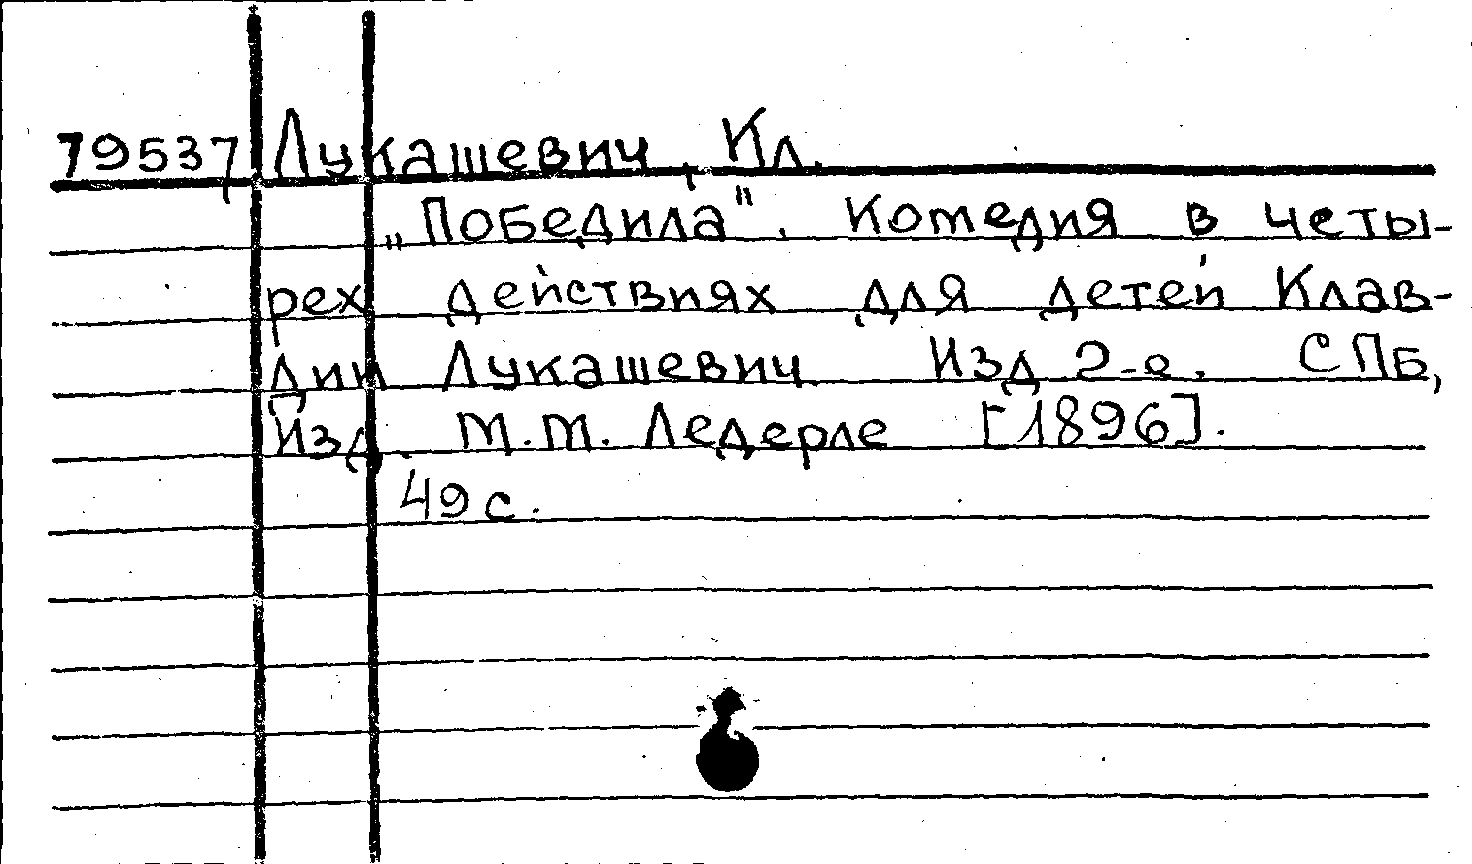 79537 Лукашевич, Кл.
„Победила". Комедия в четы-
рех действиях для детей Клав-
дии Лукашевич Изд 2-е. СПБ,
Изд. М.М. Ледерле [1896].
49 с.